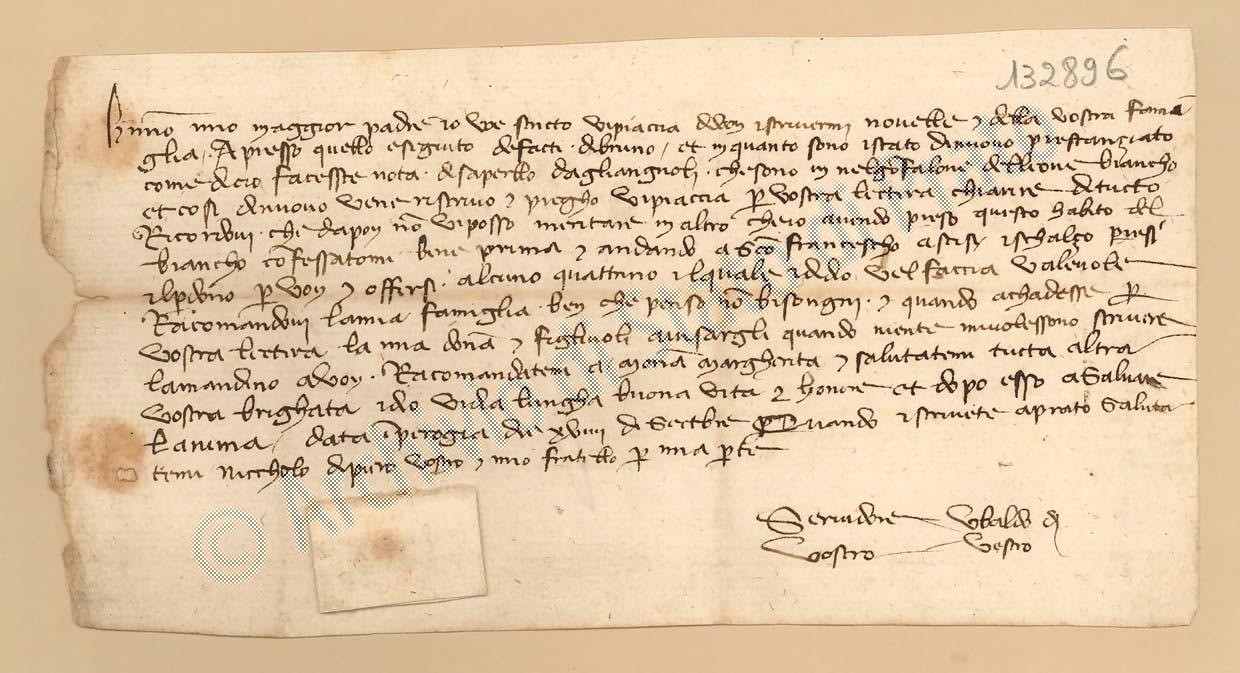 132896
mio maggior padre io ve scricto vipiaccia di voy iscrivermi novelle e della vostra fami
glia. Apresso quello e sighuito de facti di bruno, et inquanto sono istato dinuovo prestanziato
come di cio faceste nota. disaperllo dagliangnoli. che sono in nel gofalone delione biancho
et cosi dinuovo vene riscrivo e pregho vipiaccia p vostra lectira chiarire ditucto
Ricordovi. che dapoy nō viposso meritare in altro che io avendo preso questo habito del
biancho cōfessatomi bene prima e andando a Sco Francescho ascisi ischalço presi
ilpdono p voy e offersi. alcuno quattrino ilquale iddio vel faccia valevole
Racomandovi lamia famiglia. ben che penso nō bisongni. e quando achadesse p
vostra lectira la mia dona e figlivoli avisargli quando niente mivolessono scrivere
lamandino a voy. Racomandatemi a monā margherita e salutatemi tucta altra
vostra brighata idio vidia lungha buona vita e honore et dopo esso a Salvare
lanima. data i perogia die xviiii di Sectbre Quando iscrivete aprato Saluta
temi Niccholo dipiero vostro e mio fratello p mia pte
Servidore Ubaldo di
vostro vestro
© Archivio